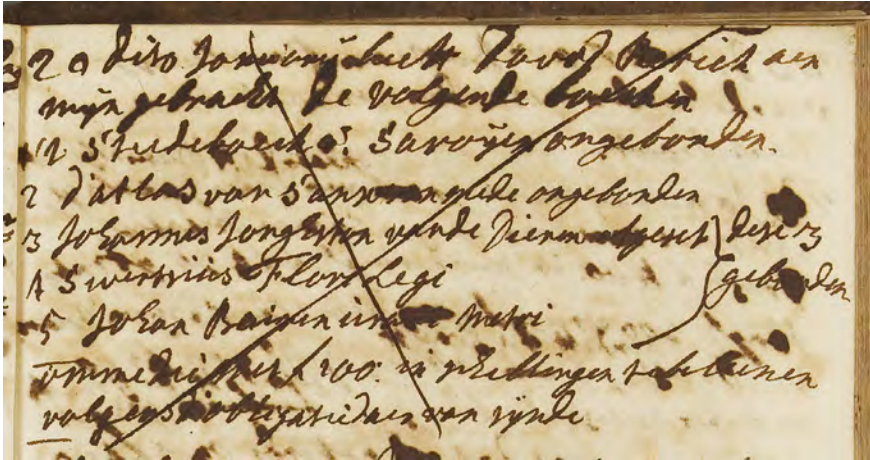 20 dito Januarij heeft David Rerick aen
mijn gebracht de volgende boecken
1 'T Stedeboeck v. Savoyen ongebonden.
2 d'atlas van Sanson mede ongebonden
3 Johannes Jonghston vande Dieren afgeset } dese 3
4 Swertius Florilegi gebonden
5 Johan Baijeri uranometri
omme hier met f 200: in schellingen te beleenen
volgens obligatie daer van sijnde